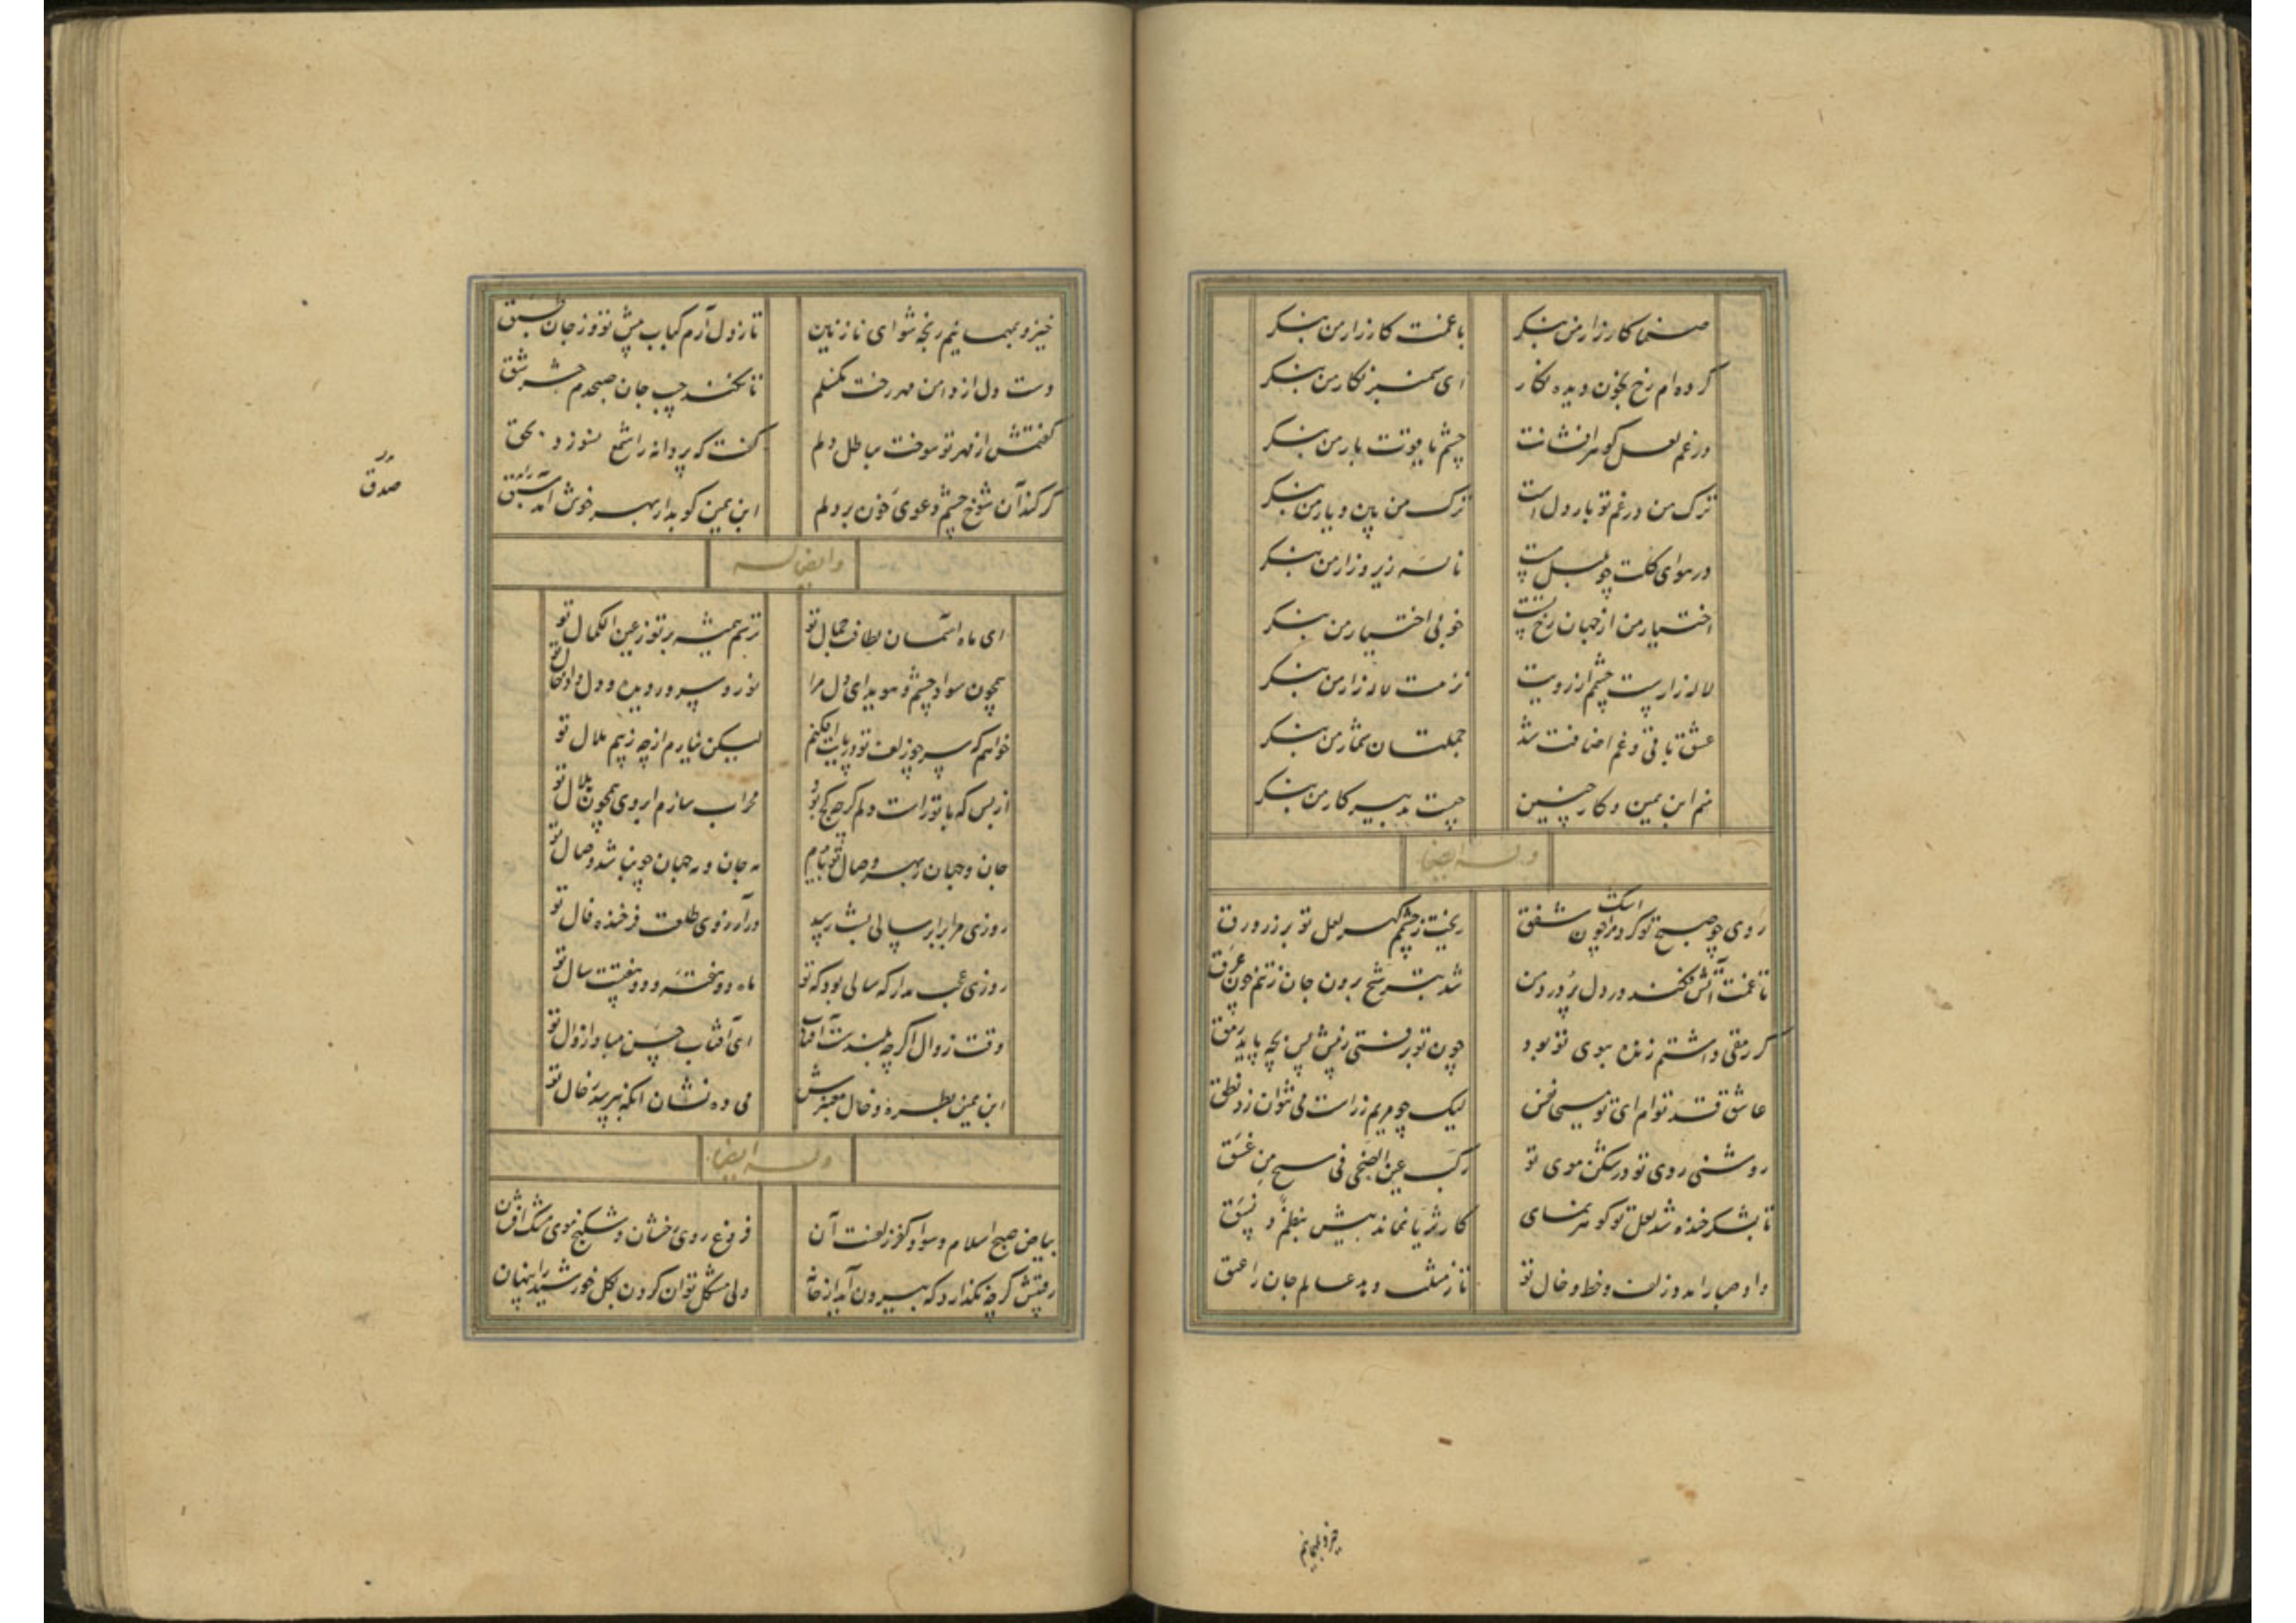 صنما کار زار من بنگر با غمت کارزار من بنگر
کرده‌ام رخ بخون دیده نگار ای سمنبر نگار من بنگر
در غم لعل گوهر افشانت چشم یاقوت بار من بنگر
ترک من در غم تو بار دل است ترک من بین و یار من بنگر
در هوای گلت چو بلبل مست ناله زیر و زار من بنگر
اختیار من از جهان رخ تست خوبی اختیار من بنگر
لاله زاریست چشمم از رویت نزهت لاله زار من بنگر
عشق باقی و غم اضافت شد جملتان شمار من بنگر
منم ابن یمین و کار چنین چیست تدبیر کار من بنگر
وله ایضا
اشک
روی چو صبح تو کرد مرا چون شفق ریخت ز چشمم گهر لعل تو بر زر ورق
تا غمت آتش فکند در دل پر درد من شد بترشح برون جان ز تنم چون عرق
گر رمقی داشتم زنده ببوی تو بود چون تو برفتی ز پیش پس بچه پاید رمق
عاشق قد توام ای تو مسیحا نفس لیک چو مریم ز راست می نتوان زد نطق
روشنی روی تو در شکن موی تو رکب عین الضحی فی من غسق
تا بشکر خنده شد لعل تو گوهر نمای کار ثریا نماند بیش بنظم و نسق
داد صبا را بدو زلف و خط و خال تو تا ز مثلث دهد عالم جان را عبق
خیز و بمهمانیم رنجه شو ای نازنین تا ز دل آرم کباب پیش تو وز جان طبق
دست دل از دامن مهر رخت نگسلم تا نکند جیب جان صبحدم حشر شق
گفتمش از مهر تو سوخت بباطل دلم گفت که پروانه را شمع بسوزد بحق
گر کند آن شوخ چشم دعوی خون بر دلم ابن یمین گو بدار بهر خوش آمد سبق
صدق
وایضا له
ای ماه آسمان لطافت جمال تو ترسم همیشه بر تو ز عین الکمال تو
همچون سواد چشم و سویدای دل مرا نور و سرور دیده و دل داد خال تو
خواهم که سر چو زلف تو در پایت افکنم لیکن نیارم ازچه ز بیم ملال تو
از بس که با تو راست دلم گرچه کج بود محراب سازم ابروی همچون هلال تو
جان و جهان ز بهر وصال تو بایدم نه جان و نه جهان چو نباشد وصال تو
روزی مرا برابر سالی بشب رسید در آرزوی طلعت فرخنده فال تو
روزی عجب مدار که سالی بود که تو ماه دو هفته و دو هفتست سال تو
وقت زوال اگرچه بلندست آفتاب ای آفتاب حسن مبادا زوال تو
ابن یمین بطره و خال معنبرش می ده نشان آنکه بپرسد ز خال تو
وله ایضا
بیاض صبح اسلام و سواد کفر زلفت آن فروغ روی رخشان و شکنج موی مشک افشان
رقیبش گرچه نگذارد که بیرون آید از خانه ولی مشکل توان کردن بگل خورشید را پنهان
خیز و بمهمانیم